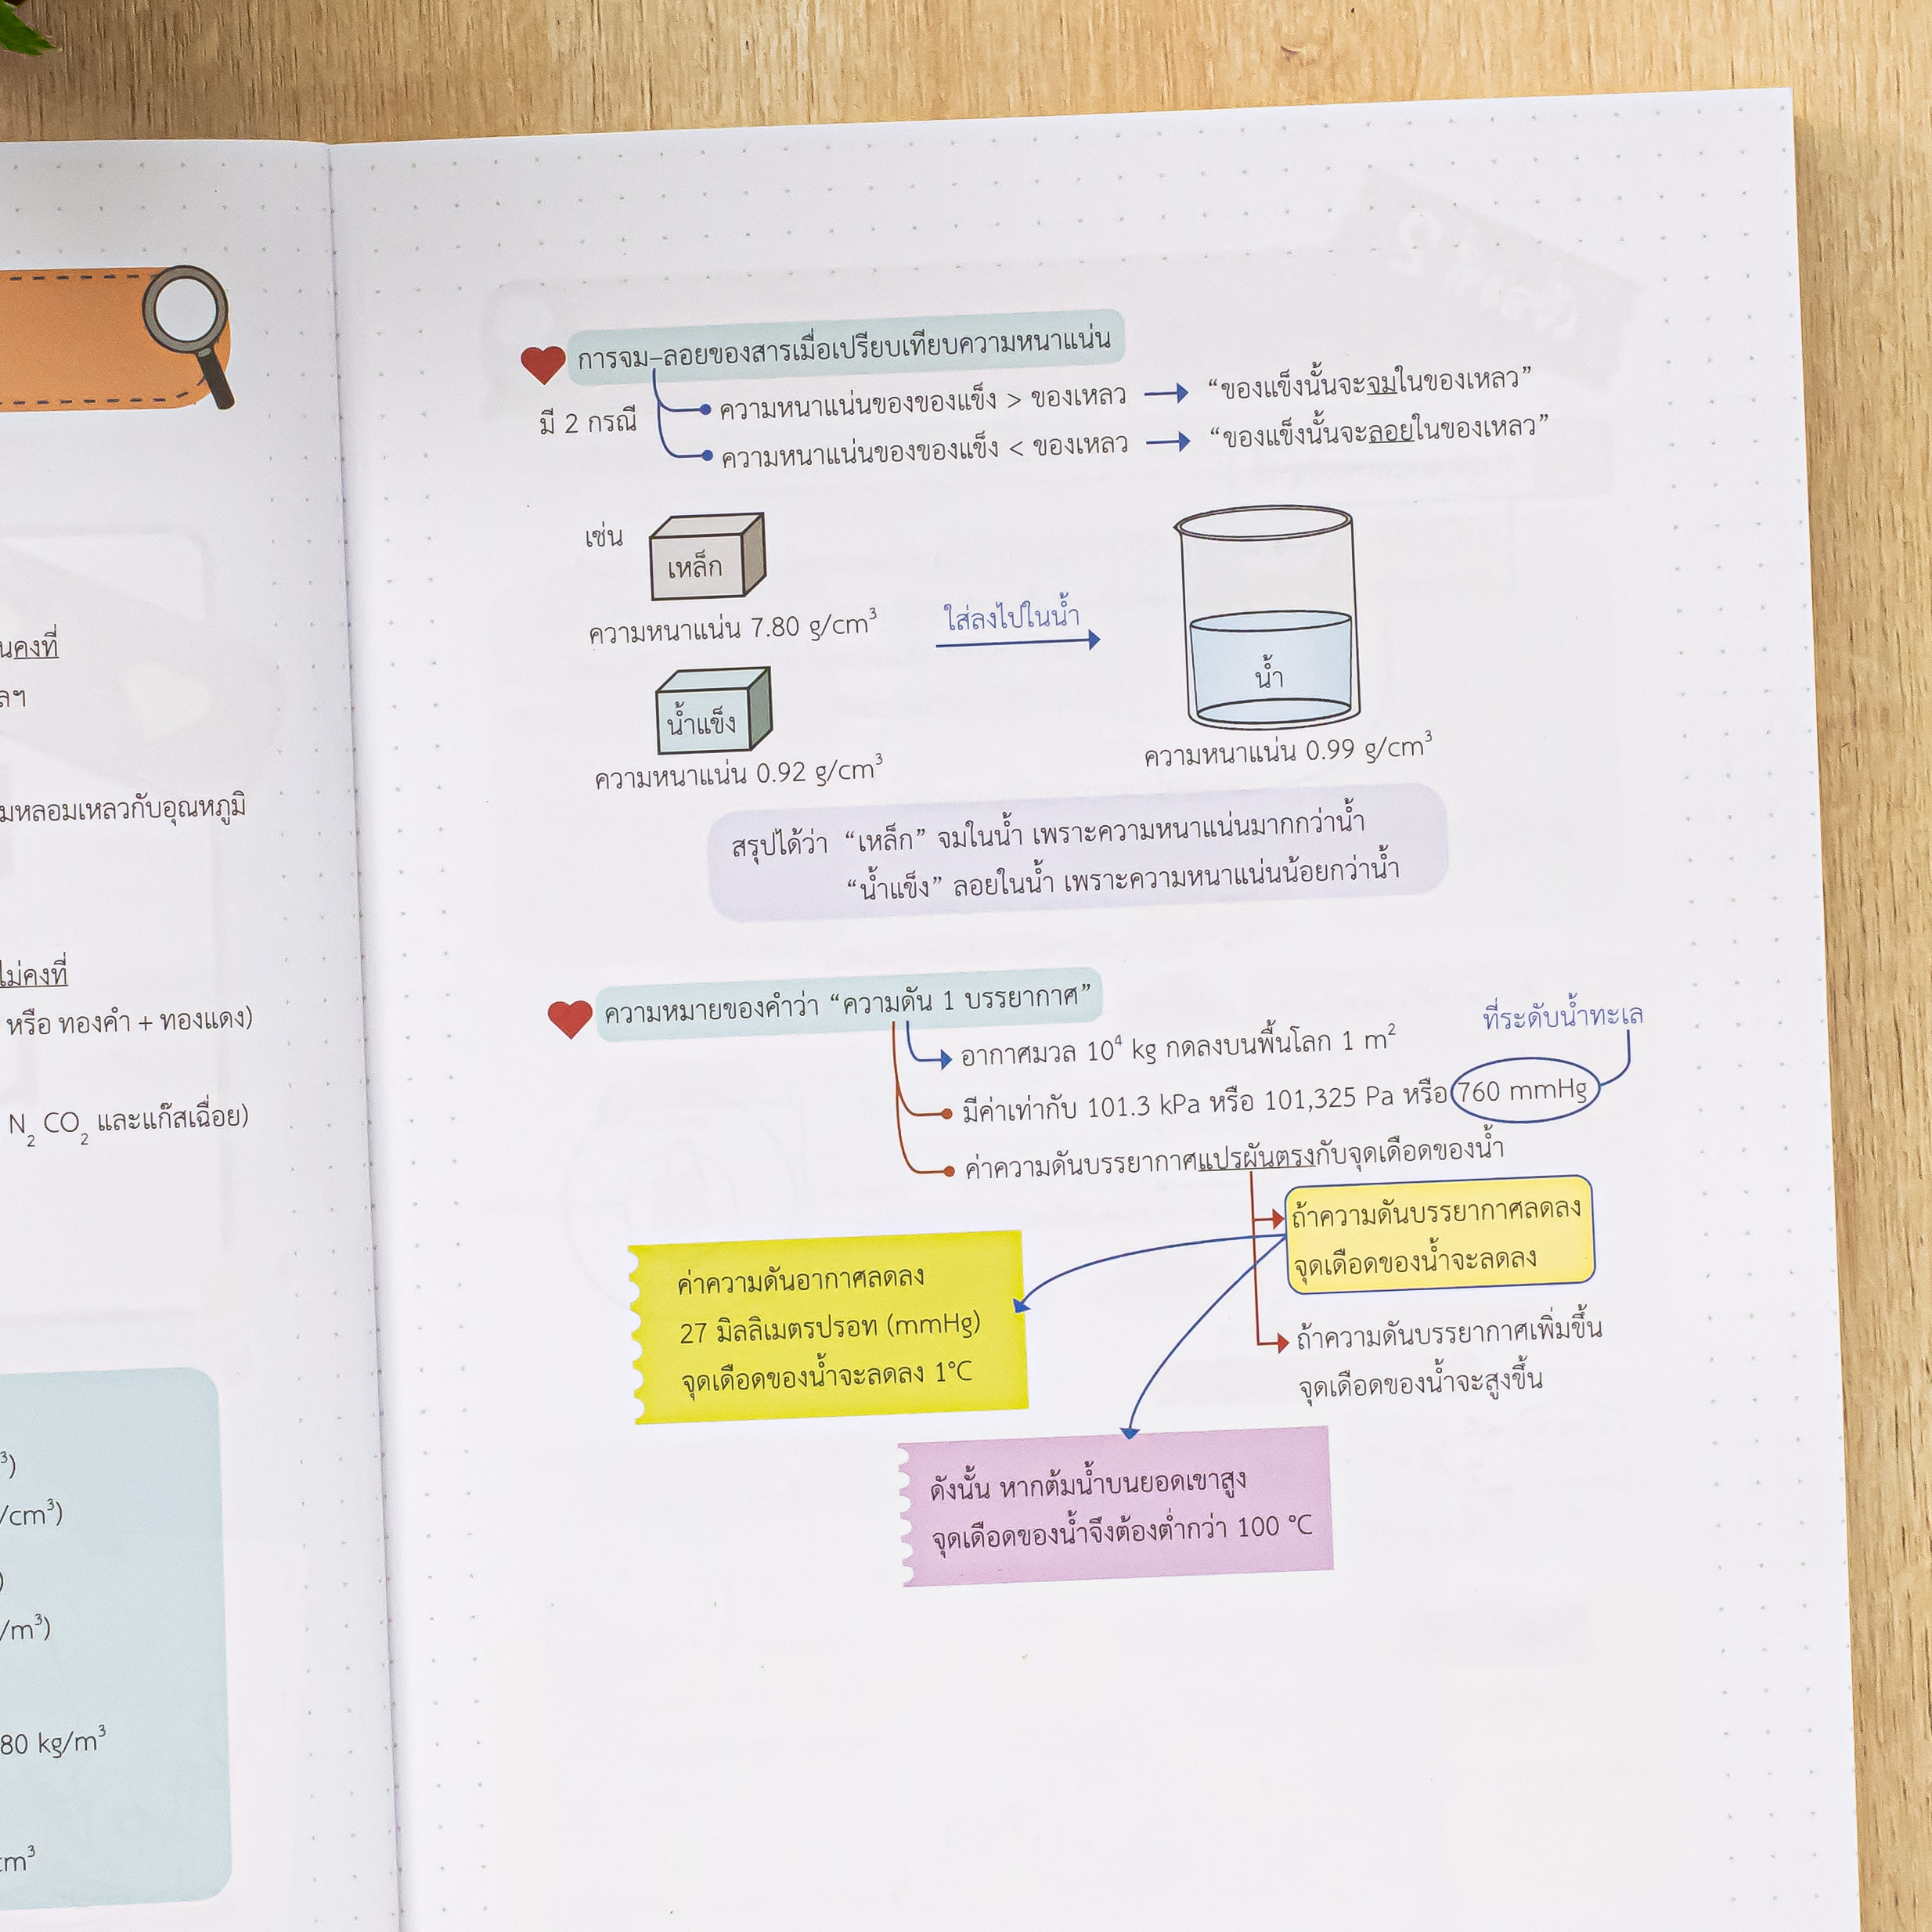 คงที่
ลฯ
มหลอมเหลวกับอุณหภูมิ
ไม่คงที่
หรือ ทองคำ + ทองแดง)
N₂ CO₂ และแก๊สเฉื่อย)
³)
/cm³)
)
/m³)
80 kg/m³
cm³
การจม–ลอยของสารเมื่อเปรียบเทียบความหนาแน่น
มี 2 กรณี
ความหนาแน่นของของแข็ง > ของเหลว → “ของแข็งนั้นจะจมในของเหลว”
ความหนาแน่นของของแข็ง < ของเหลว → “ของแข็งนั้นจะลอยในของเหลว”
เช่น
เหล็ก
ความหนาแน่น 7.80 g/cm³
น้ำแข็ง
ความหนาแน่น 0.92 g/cm³
ใส่ลงไปในน้ำ
น้ำ
ความหนาแน่น 0.99 g/cm³
สรุปได้ว่า “เหล็ก” จมในน้ำ เพราะความหนาแน่นมากกว่าน้ำ
“น้ำแข็ง” ลอยในน้ำ เพราะความหนาแน่นน้อยกว่าน้ำ
ความหมายของคำว่า “ความดัน 1 บรรยากาศ”
ที่ระดับน้ำทะเล
อากาศมวล 10⁴ kg กดลงบนพื้นโลก 1 m²
มีค่าเท่ากับ 101.3 kPa หรือ 101,325 Pa หรือ 760 mmHg
ค่าความดันบรรยากาศแปรผันตรงกับจุดเดือดของน้ำ
ถ้าความดันบรรยากาศลดลง
จุดเดือดของน้ำจะลดลง
ถ้าความดันบรรยากาศเพิ่มขึ้น
จุดเดือดของน้ำจะสูงขึ้น
ค่าความดันอากาศลดลง
27 มิลลิเมตรปรอท (mmHg)
จุดเดือดของน้ำจะลดลง 1°C
ดังนั้น หากต้มน้ำบนยอดเขาสูง
จุดเดือดของน้ำจึงต้องต่ำกว่า 100 °C